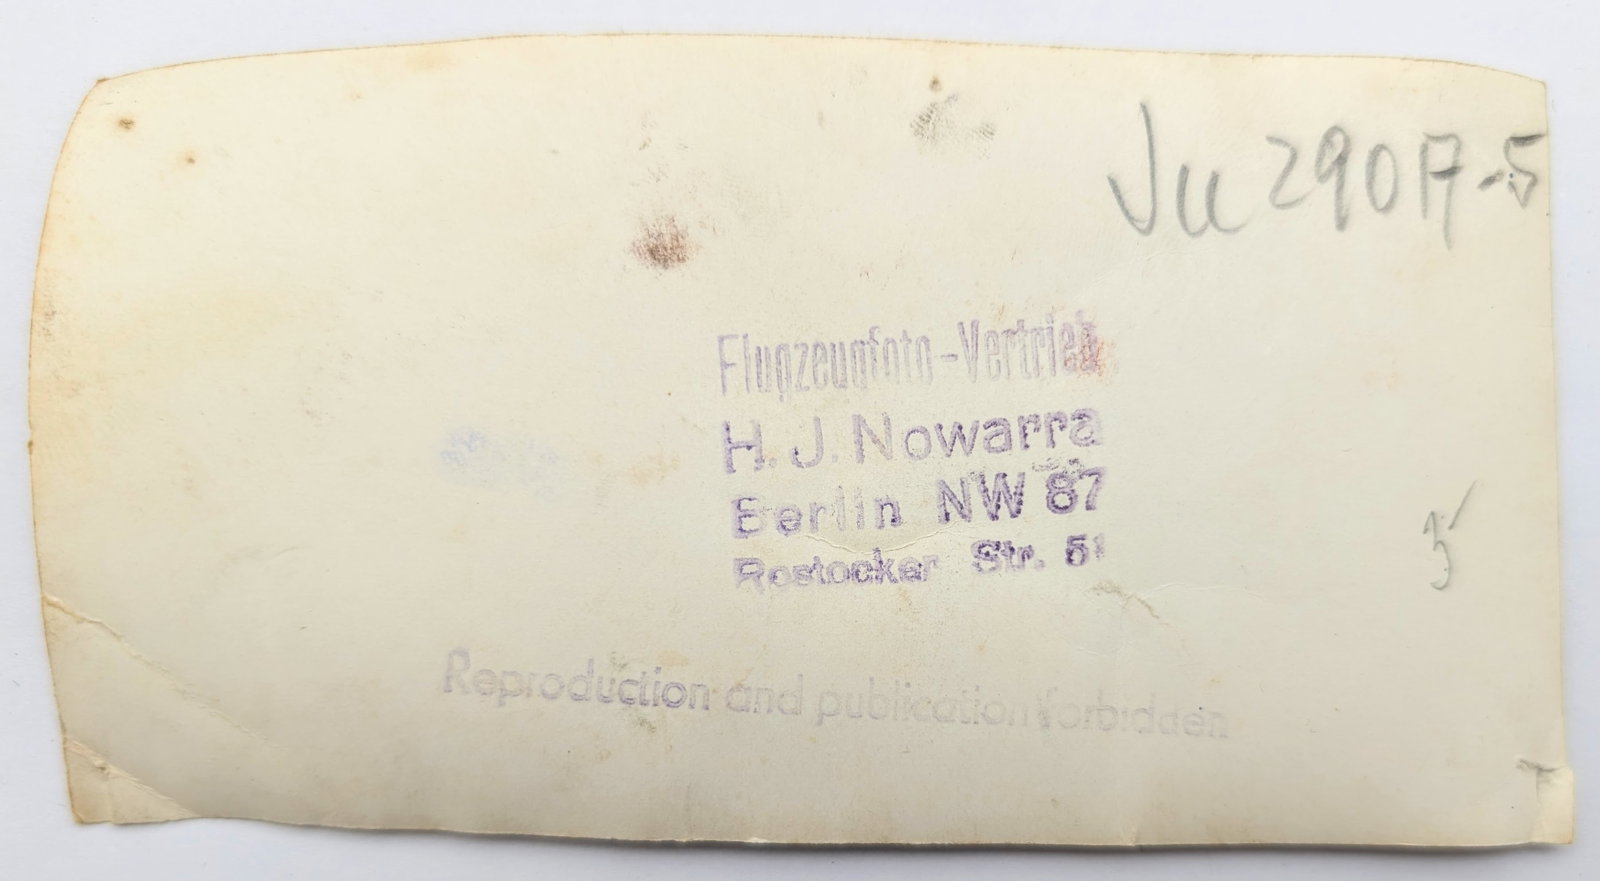 Ju 290 A-5
Flugzeugfoto-Vertrieb
H. J. Nowarra
Berlin NW 87
Rostocker Str. 51
5
Reproduction and publication forbidden